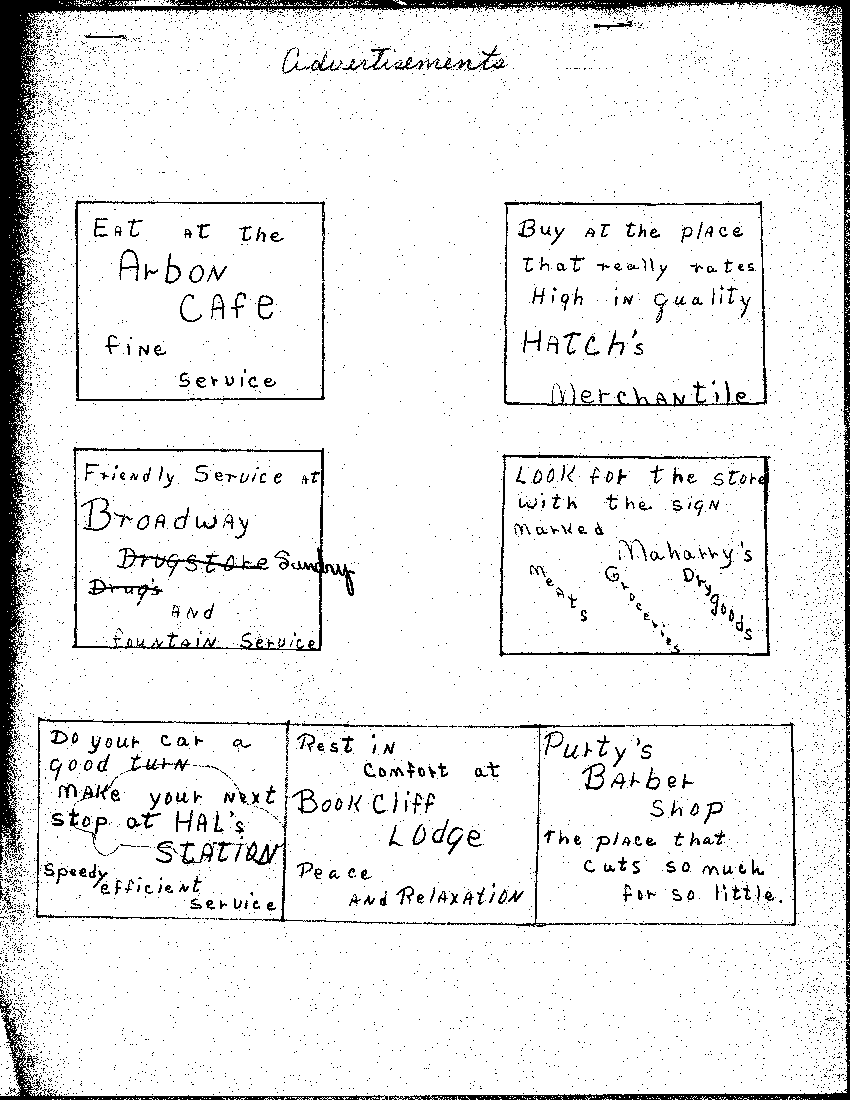 Advertisements
Eat at the
Arbon
Cafe
fine
Service
Buy at the place
that really rates
High in quality
Hatch's
Merchantile
Friendly Service at
Broadway
Drugstore Sundry
Drug's
and
fountain Service
Look for the store
with the sign
marked
Maharry's
Meats
Groceries
Drygoods
Do your car a
good turn
make your next
stop at HAL's
STATION
Speedy
efficient
service
Rest in
comfort at
Book Cliff
Lodge
Peace
and Relaxation
Purty's
Barber
Shop
The place that
cuts so much
for so little.